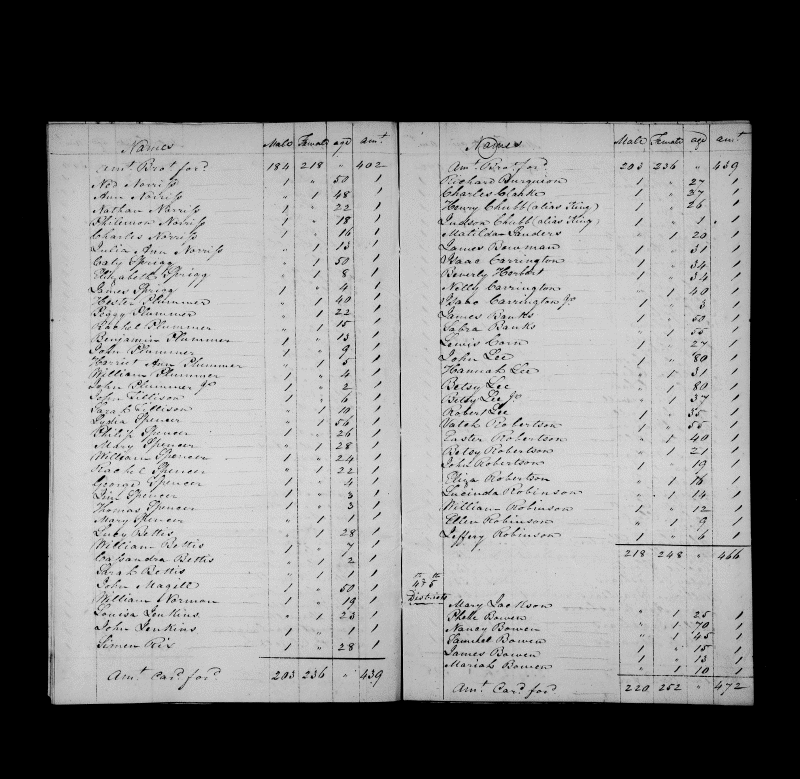 Names Male Female age amt
Amt Brot for'd 184 218 " 402
Ned Norriss 1 " 50 1
Ann Norriss " 1 48 1
Nathan Norriss 1 " 22 1
Philemon Norriss 1 " 18 1
Charles Norriss 1 " 16 1
Julia Ann Norriss " 1 13 1
Caty Sprigg " 1 50 1
Elizabeth Sprigg " 1 8 1
James Sprigg 1 " 4 1
Hester Plummer " 1 40 1
Peggy Plummer " 1 22 1
Rachel Plummer " 1 15 1
Benjamin Plummer 1 " 13 1
John Plummer 1 " 9 1
Harriet Ann Plummer " 1 5 1
William Plummer 1 " 4 1
John Plummer Jr 1 " 2 1
John Tillison 1 " 6 1
Sarah Tillison " 1 10 1
Lydia Spencer " 1 56 1
Philip Spencer 1 " 26 1
Mary Spencer " 1 28 1
William Spencer 1 " 24 1
Rachel Spencer " 1 22 1
George Spencer 1 " 4 1
Spencer 1 " 3 1
Thomas Spencer 1 " 3 1
Mary Spencer " 1 1 1
Luby Bettis " 1 28 1
William Bettis 1 " 7 1
Cassandra Bettis " 1 2 1
Sarah Bettis " 1 1 1
John 1 " 50 1
William Norman 1 " 19 1
Louisa Jenkins " 1 23 1
John Jenkins 1 " 1 1
Simon Rix 1 " 28 1
Amt Car'd for'd 203 236 " 439
Names Male Female age amt
Amt Brot for'd 203 236 " 439
Richard Burguion 1 " 27 1
Charles Clahke 1 " 37 1
Henry Chubb (alias King) 1 " 26 1
Judson Chubb (alias King) 1 " 1 1
Matilda Sanders " 1 20 1
James Bowman 1 " 31 1
Isaac Carrington 1 " 34 1
Beverly Herbert 1 " 34 1
Nelly Carrington " 1 40 1
Isaac Carrington Jr 1 " 3 1
James Banks 1 " 50 1
Sabra Banks " 1 55 1
Lewis Corn 1 " 27 1
John Lee 1 " 80 1
Hannah Lee " 1 31 1
Betsy Lee " 1 80 1
Betsy Lee Jr " 1 37 1
Robert Lee 1 " 35 1
Robertson 1 " 55 1
Easter Robertson " 1 40 1
Betsy Robertson " 1 21 1
John Robertson 1 " 19 1
Eliza Robertson " 1 16 1
Lucinda Robinson " 1 14 1
William Robinson 1 " 12 1
Ellen Robinson " 1 9 1
Jeffery Robinson 1 " 6 1
218 248 " 466
4th & 5th
Districts
Mary Jackson " 1 25 1
Phebe Bowen " 1 70 1
Nancy Bowen " 1 45 1
Samuel Bowen 1 " 15 1
James Bowen 1 " 13 1
Mariah Bowen " 1 10 1
Amt Car'd for'd 220 252 " 472